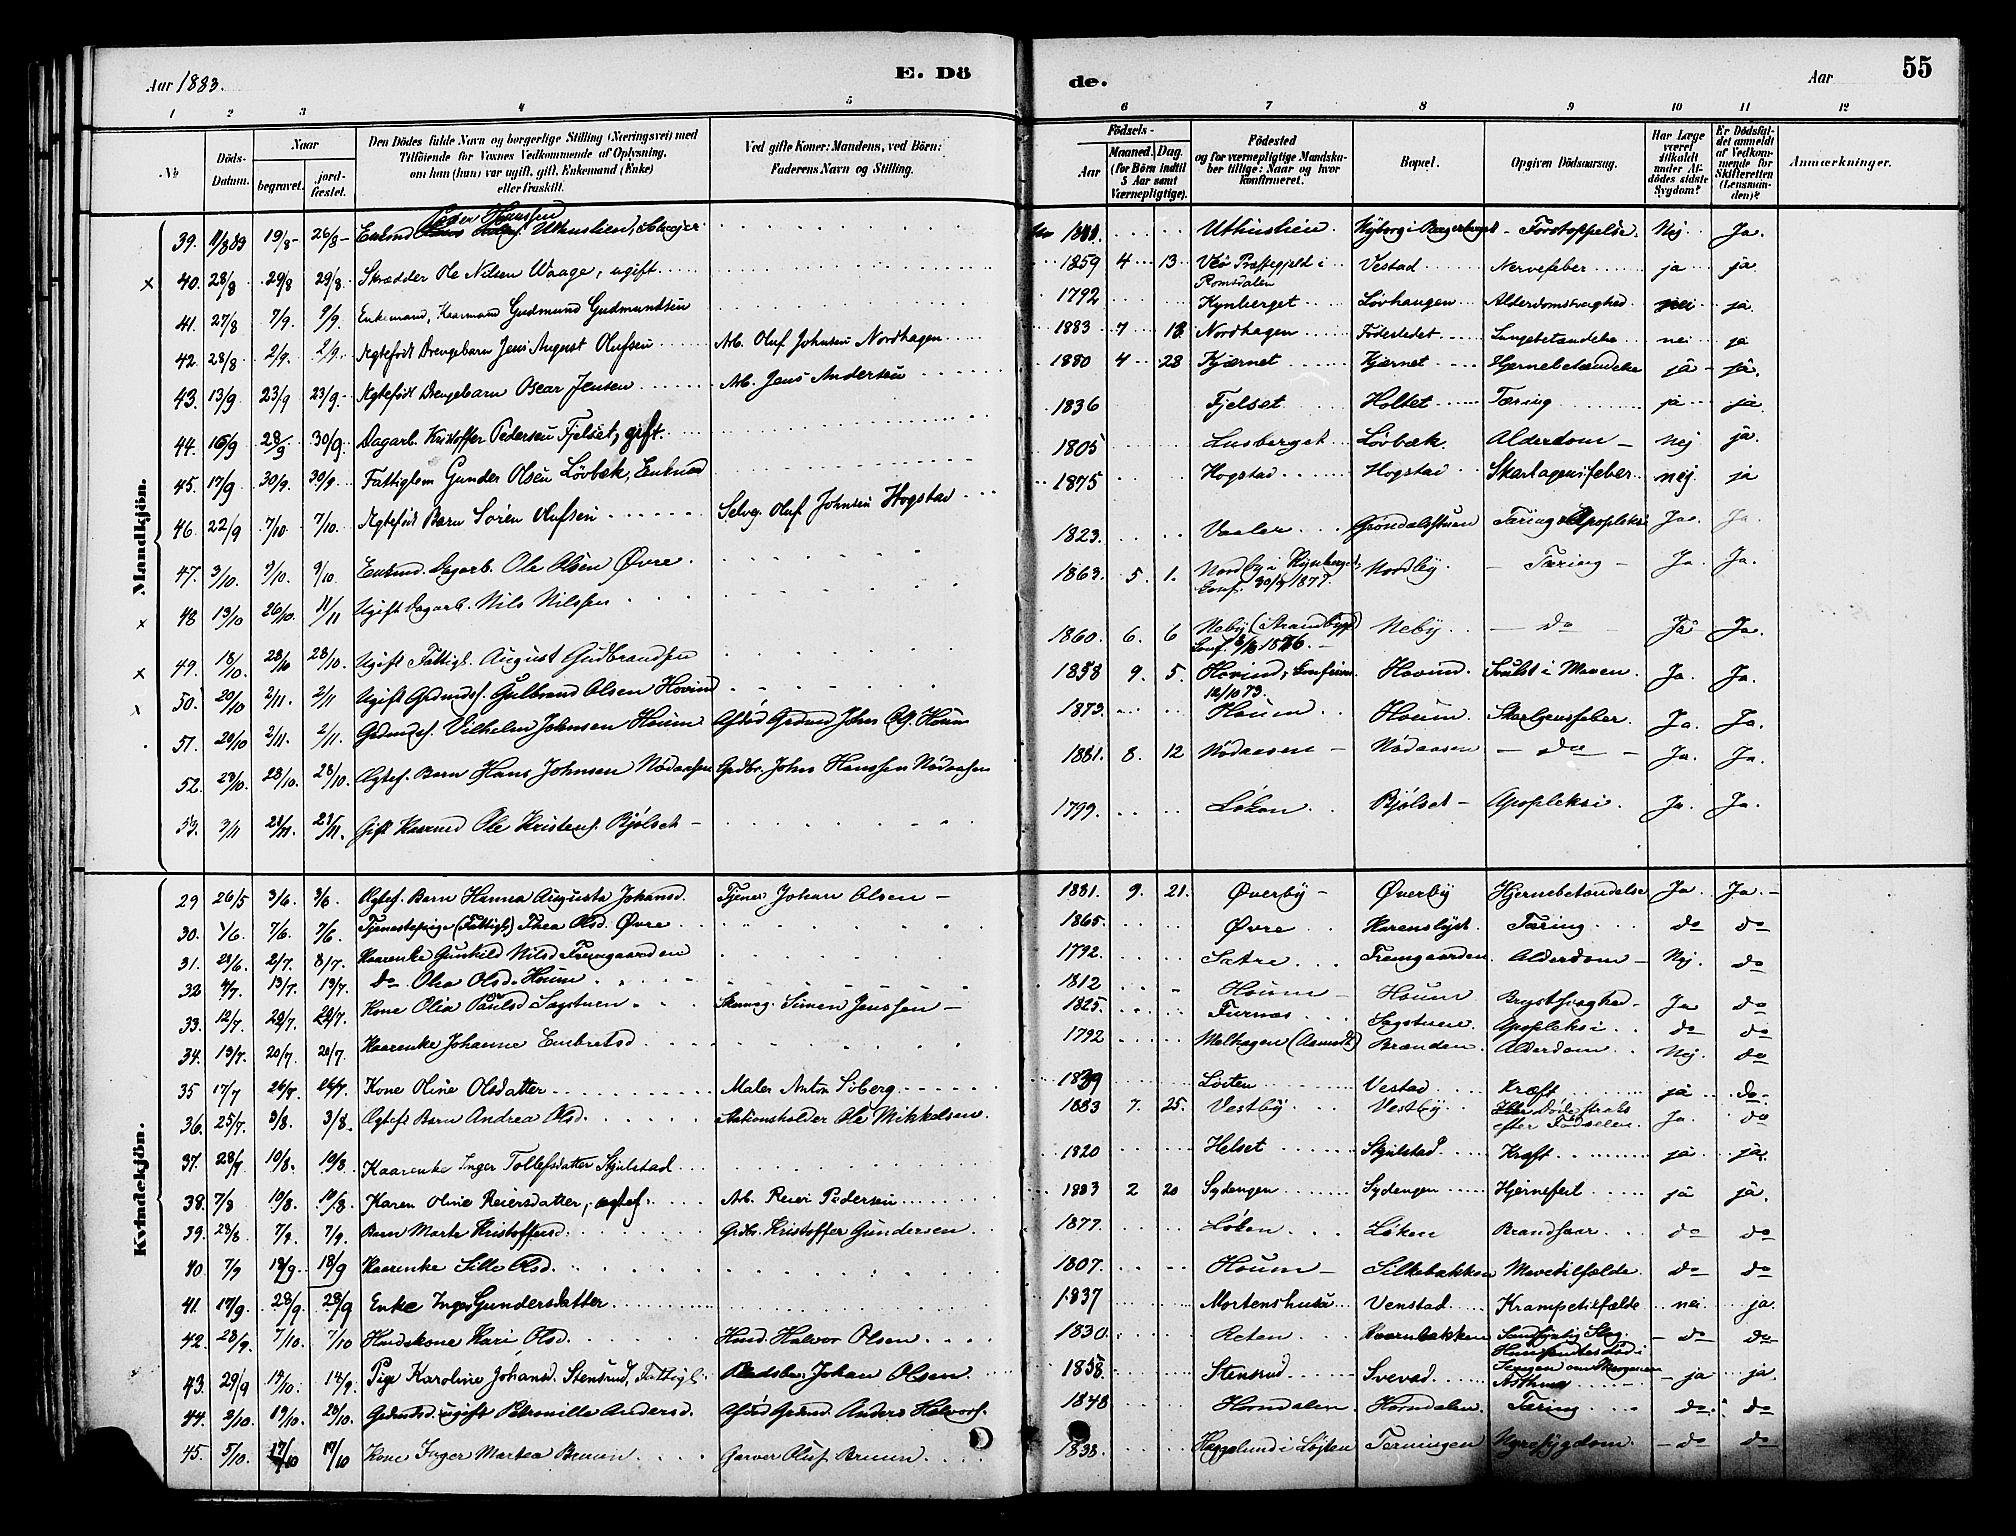 Aar 1883.
E. Dö
de.
Aar
55
1 2 3 4 5 6 7 8 9 10 11 12
No
Döds-Datum.
Naar
begravet.
jord-fæstet.
Den Dödes fulde Navn og borgerlige Stilling (Næringsvei) med Tilföiende for Voxnes Vedkommende af Oplysning, om han (hun) var ugift, gift, Enkemand (Enke) eller fraskilt.
Ved gifte Koner: Mandens, ved Börn: Faderens Navn og Stilling.
Födsels-
Aar
Maaned. Dag.
(for Börn indtil 5 Aar samt Værnepligtige).
Födested og for værnepligtige Mandskaber tillige: Naar og hvor konfirmeret.
Bopæl.
Opgiven Dödsaarsag.
Har Læge været tilkaldt under Afdödes sidste Sygdom?
Er Dödsfaldet anmeldt af Vedkommende for Skifteretten (Lensmanden)?
Anmærkninger.
Mandkjön.
39. 11/8 83 19/8- 26/8- Enkmd Uthuslien, Selvejer 1811. Uthuslien Nej Ja. Forstoppelse.
40. 28/8 29/8 29/8. Skrædder Ole Nilsen Waage, ugift 1859 4 13. Veö Præstegjeld i Romsdalen Vestad Nervefeber ja ja
41. 27/8 7/9. 9/9. Enkemand, Kaarmand Gudmund Gudmundsen 1792 Kynberget Lövhaugen Alderdomssvaghed nei ja
42. 28/8 2/9. 2/9. Ægtefödt Drengebarn Jens August Olufsen Arb. Oluf Johnsen Nordhagen 1883 7 18. Nordhagen Födestedet Lungebetændelse nei ja
43. 13/9 23/9 23/9. Ægtefödt Drengebarn Oscar Jensen Arb. Jens Andersen 1880 4 28 Kjærnet Kjærnet Hjernebetændelse ja ja.
44. 16/9 28/9 30/9. Dagarb. Kristoffer Pedersen Fjelset, gift. 1836 Fjelset Holtet Tæring ja ja
45. 17/9 30/9. 30/9. Fattiglem Gunder Olsen Lövbæk, Enkmd 1805 Lusberget Lövbæk Alderdom nej ja.
46. 22/9 7/10 7/10. Ægtefödt Barn Sören Olufsen Selveg. Oluf Johnsen Hogstad 1875 Hogstad Hogstad Skarlagensfeber nej ja
47. 3/10. 9/10. 9/10. Enkmd. Dagarb. Ole Olsen Øvre. 1823. Vaaler Gröndalsstuen Tæring & Apopleksi Ja. Ja.
48 13/10 26/10. 11/11 Ugift Dagarb. Nils Nilssen 1863. 5. 1. Nordby i Kynberget. Conf. 30/9 1877. Nordby. Tæring Ja. Ja.
49. 18/10. 28/10 28/10. Ugift Fattigl. August Gudbrandsen 1860. 6. 6 Neby (Strandbygd) Conf. 1876. Neby do Ja Ja.
50. 20/10 2/11. 2/11 Ugift Grdmds. Gulbrand Olsen Hovind 1858 9. 5. Hovind, Confirm. 12/10 73. Hovind. Svulst i Maven. Ja. Ja.
51. 29/10 2/11. 2/11. Grdmds. Vilhelm Johnsen Houm Afdöd Grdmd John Ols. Houm 1873. Houm Houm. Skarlgensfeber. Ja. Ja.
52. 23/10. 28/10. 28/10. Ægtef. Barn Hans Johnsen Nödaasen Grdbr. John Hanssen Nödaasen 1881. 8. 12 Nödaasen Nödaasen do Ja. Ja.
53. 3/11 23/11. 23/11. Gift Kaarmd Ole Kristens. Bjölset 1799. Löken Bjölset Apopleksi. Ja. Ja.
Kvindekjön.
29 26/5 3/6. 3/6. Ægtef. Barn Hanna Augusta Johansd. Tjener Johan Olsen 1881. 9. 21. Øverby Øverby Hjernebetændelse Ja. Ja.
30. 1/6. 7/6. 7/6. Tjenestepige (Fattigl.) Thea Olsd. Øvre 1865. Øvre Karenslyst. Tæring do do
31. 23/6. 2/7. 8/7. Kaarenke Gunhild Nilsd Fremgaarden 1792. Sætre Fremgaarden. Alderdom Nej. do
32 4/7. 13/7. 13/7. do Olea Olsd. Houm 1812 Houm Houm Brystsvaghed Ja do
33. 12/7. 29/7. 29/7. Kone Olea Paulsd Sagstuen Simen Jenssen 1825. Furnæs Sagstuen. Apopleksi do do
34. 13/7. 20/7. 20/7. Kaarenke Johanne Embretsd 1792 Melhagen (Aamodt) Brænden. Alderdom Nej. do
35 17/7 24/7. 24/7. Kone Oline Olsdatter Maler Anton Söberg 1839 Löiten Vestad Kræft ja do.
36. 25/7. 3/8. 3/8. Ægtefö Barn Andrea Olsd. Stationsholder Ole Mikkelsen. 1883 7. 25. Vestby Vestby Döde straks efter Födselen. Ja. do
37. 28/7 10/8. 10/8. Kaarenke Inger Tollefsdatter Skjulstad 1820 Helset Skjulstad Kræft ja ja.
38. 7/8 19/8. 19/8. Karen Oline Reiersdatter, ægtef. Arb. Reier Pedersen 1883 2 20 Sydengen Sydengen Hjernefeil ja ja.
39. 28/8 7/9. 7/9. Barn Marte Kristoffersd. Grdbr. Kristoffer Gundersen 1877. Löken Löken Brandsaar do do
40. 7/9 18/9. 18/9 Kaarenke Sille Olsd. 1807. Houm Silkebakken Mavetilfælde. do do
41. 17/9. 28/9. 28/9 Enke Inger Gundersdatter 1837 Mortenshusa Venstad Krampetilfælde nei ja.
42. 28/9. 7/10. 7/10 Husdskone Kari Olsd. Husd. Halvor Olsen 1830. Reten Kaarnbakken Sandsynlig Slag. Hun fandtes död i Sengen om Morgenen do do
43. 29/9 14/10. 14/9. Pige Karoline Johansd. Stensrud, Fattigl. Pladsbr. Johan Olsen 1858. Stensrud Svevad Asthma ja ja.
44. 3/10. 19/10. 28/10. Grdmdsd. ugift Petronille Andersd. Afdöd Grdmd. Anders Halvors. 1848 Horndalen Horndalen. Tæring do do
45. 5/10. 17/10 17/10 Kone Inger Martea Bruun Garver Oluf Bruun 1838. Haggelund i Löjten Terningen Nyresygdom. do do